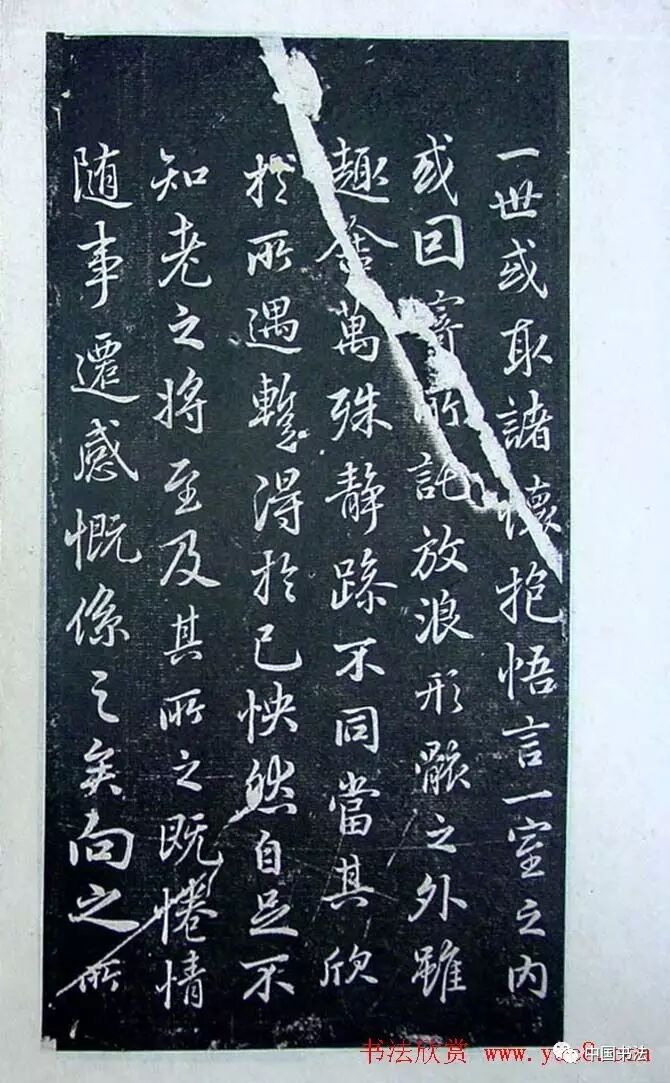 一世或取諸懷抱悟言一室之内
或因寄所託放浪形骸之外雖
趣舍萬殊静躁不同當其欣
於所遇暫得於己怏然自足不
知老之將至及其所之既惓情
随事遷感慨係之矣向之所
书法欣赏 www.y
8.
中国书法